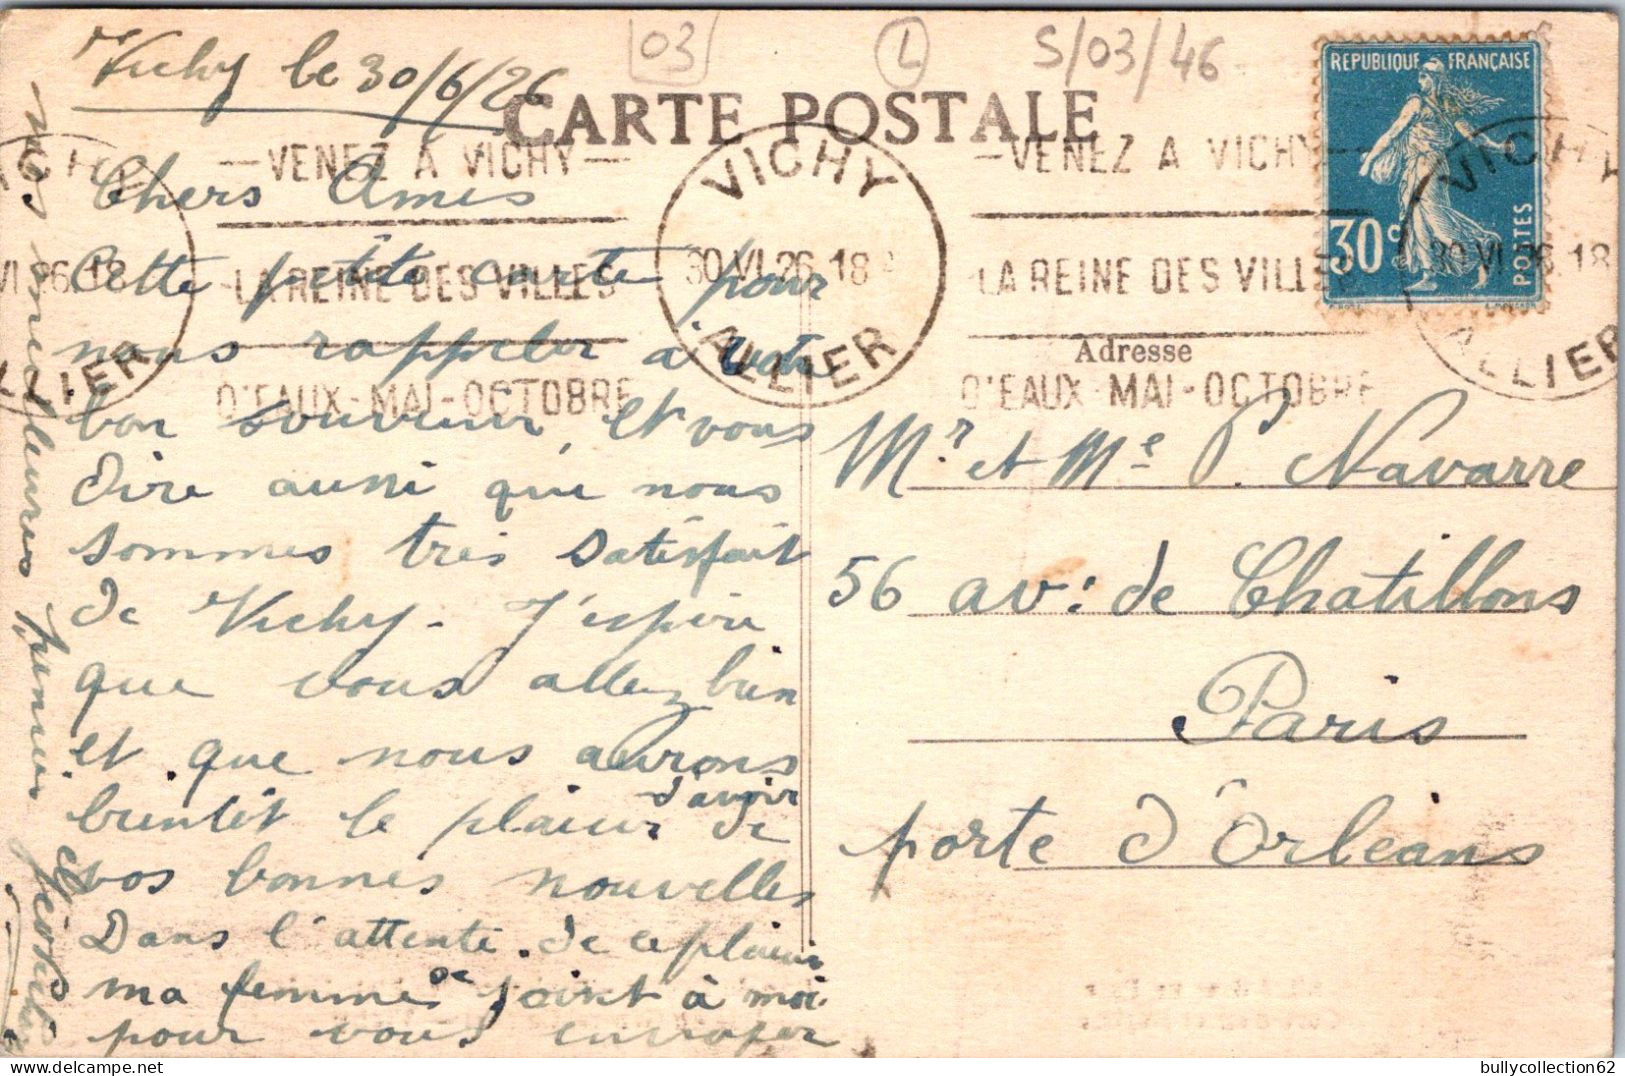 03
L
S/03/46
Vichy le 30/6/26
CARTE POSTALE
RÉPUBLIQUE FRANÇAISE
30c
POSTES
— VENEZ A VICHY —
LA REINE DES VILLES
D'EAUX - MAI - OCTOBRE
VICHY
30 VI 26 18
ALLIER
— VENEZ A VICHY —
LA REINE DES VILLES
D'EAUX - MAI - OCTOBRE
VICHY
30 VI 26 18
ALLIER
ICHY
VI 26 18
LLIER
Chers Amis
Cette petite carte pour
nous rappeler à votre
bon souvenir, et vous
dire aussi que nous
sommes très satisfait
de Vichy - J'espère
que vous allez bien
et que nous aurons
bientôt le plaisir d'avoir de
vos bonnes nouvelles
Dans l'attente de ce plaisir
ma femme se joint à moi
pour vous envoyer
nos meilleures
Adresse
Mr. et Me P. Navarre
56 av: de Chatillons
Paris
porte d'Orleans
bullycollection62